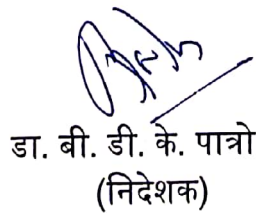 डा. बी. डी. के. पात्रो
(निदेशक)